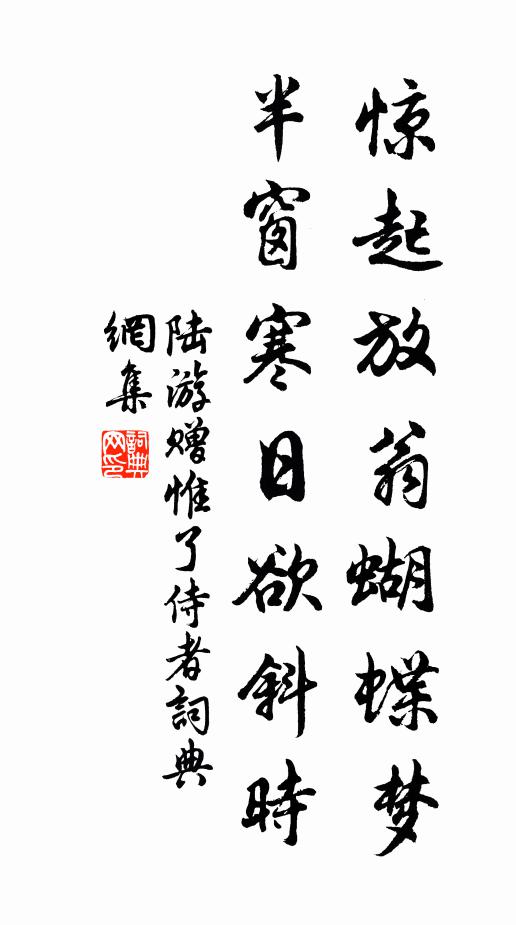 惊起放翁蝴蝶梦
半窗寒日欲斜時
陆游赠惟了侍者詞典
網集
詞典網印